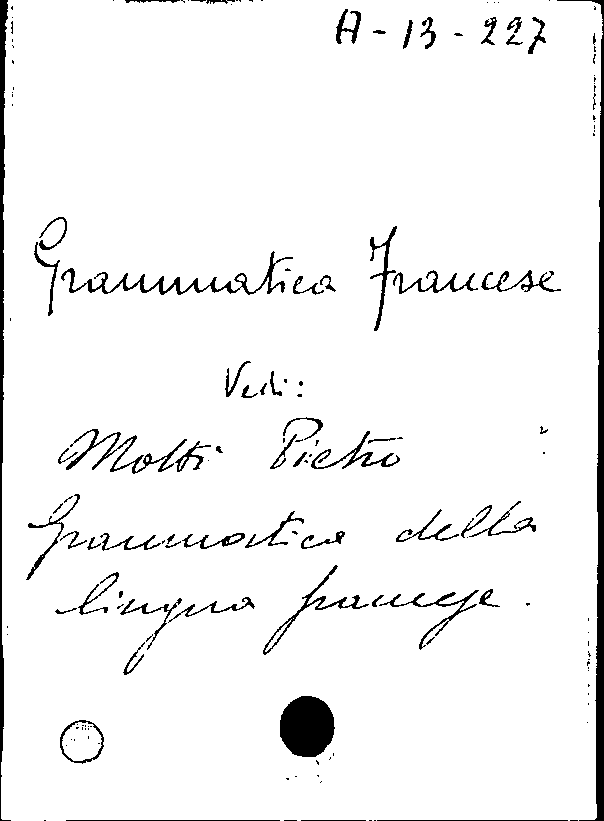 A-13-227
Grammatica Francese
Vedi:
Motti Pietro
Grammatica della
lingua francese.